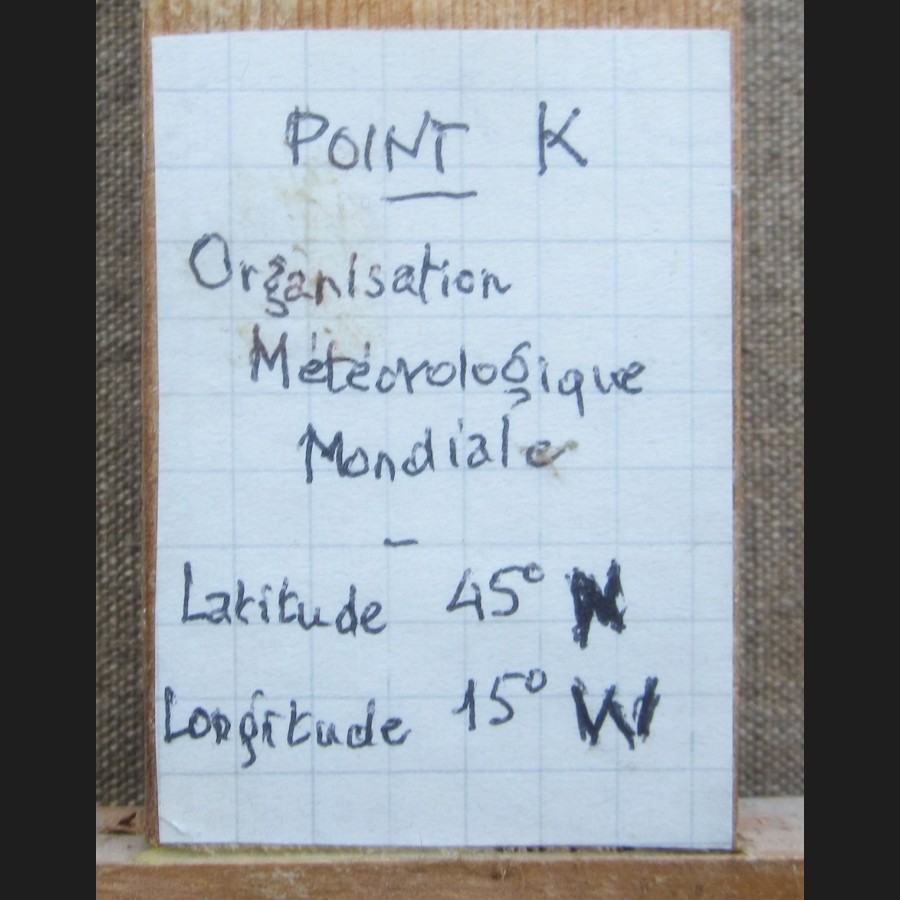 POINT K
Organisation
Météorologique
Mondiale
-
Latitude 45° N
Longitude 15° W